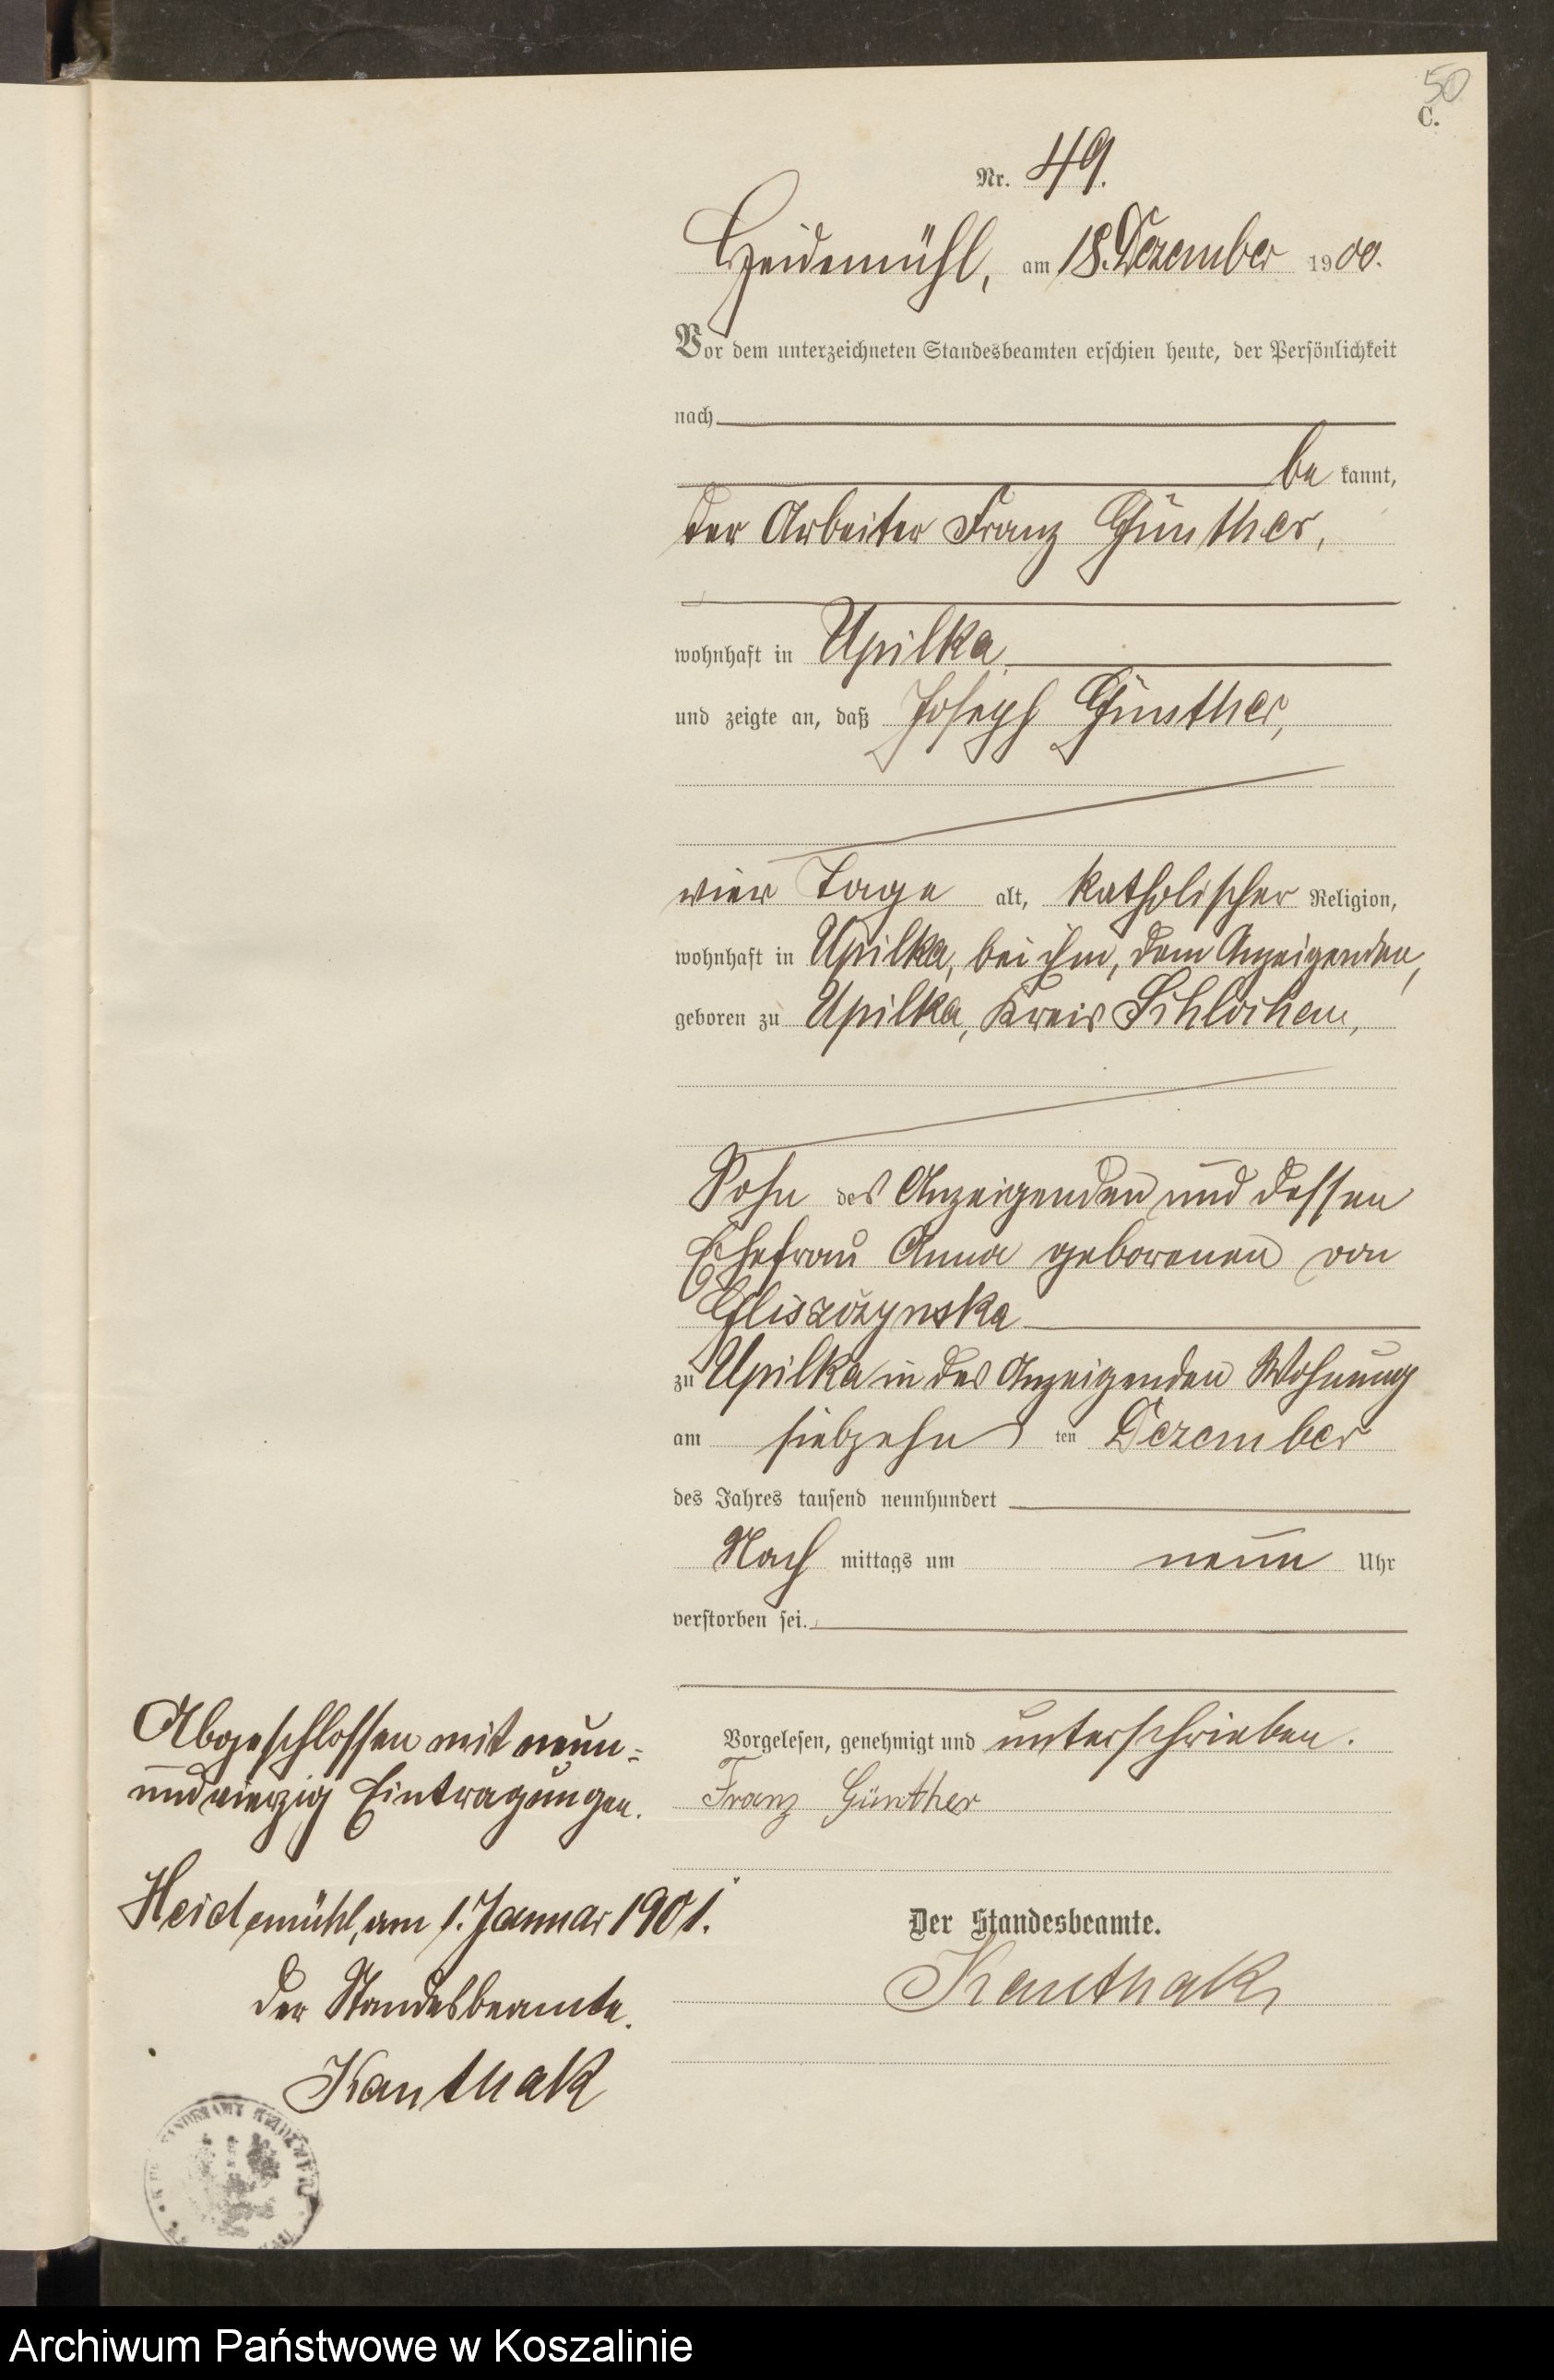 50
C.
Nr. 49.
Heidemühl, am 18. Dezember 1900.
Vor dem unterzeichneten Standesbeamten erschien heute, der Persönlichkeit
nach
be kannt,
der Arbeiter Franz Günther,
wohnhaft in Upilka
und zeigte an, daß Joseph Günther,
vier Tage alt, katholischer Religion,
wohnhaft in Upilka, bei ihm, dem Anzeigenden,
geboren zu Upilka, Kreis Schlochau,
Sohn des Anzeigenden und dessen
Ehefrau Anna geborenen von
Gliszczynska
zu Upilka in des Anzeigenden Wohnung
am siebzehn ten Dezember
des Jahres tausend neunhundert
Nach mittags um neun Uhr
verstorben sei.
Vorgelesen, genehmigt und unterschrieben.
Franz Günther
Der Standesbeamte.
Kanthak
Abgeschlossen mit neun-
undvierzig Eintragungen.
Heidemühl, am 1. Januar 1901.
Der Standesbeamte.
Kanthak
Archiwum Państwowe w Koszalinie